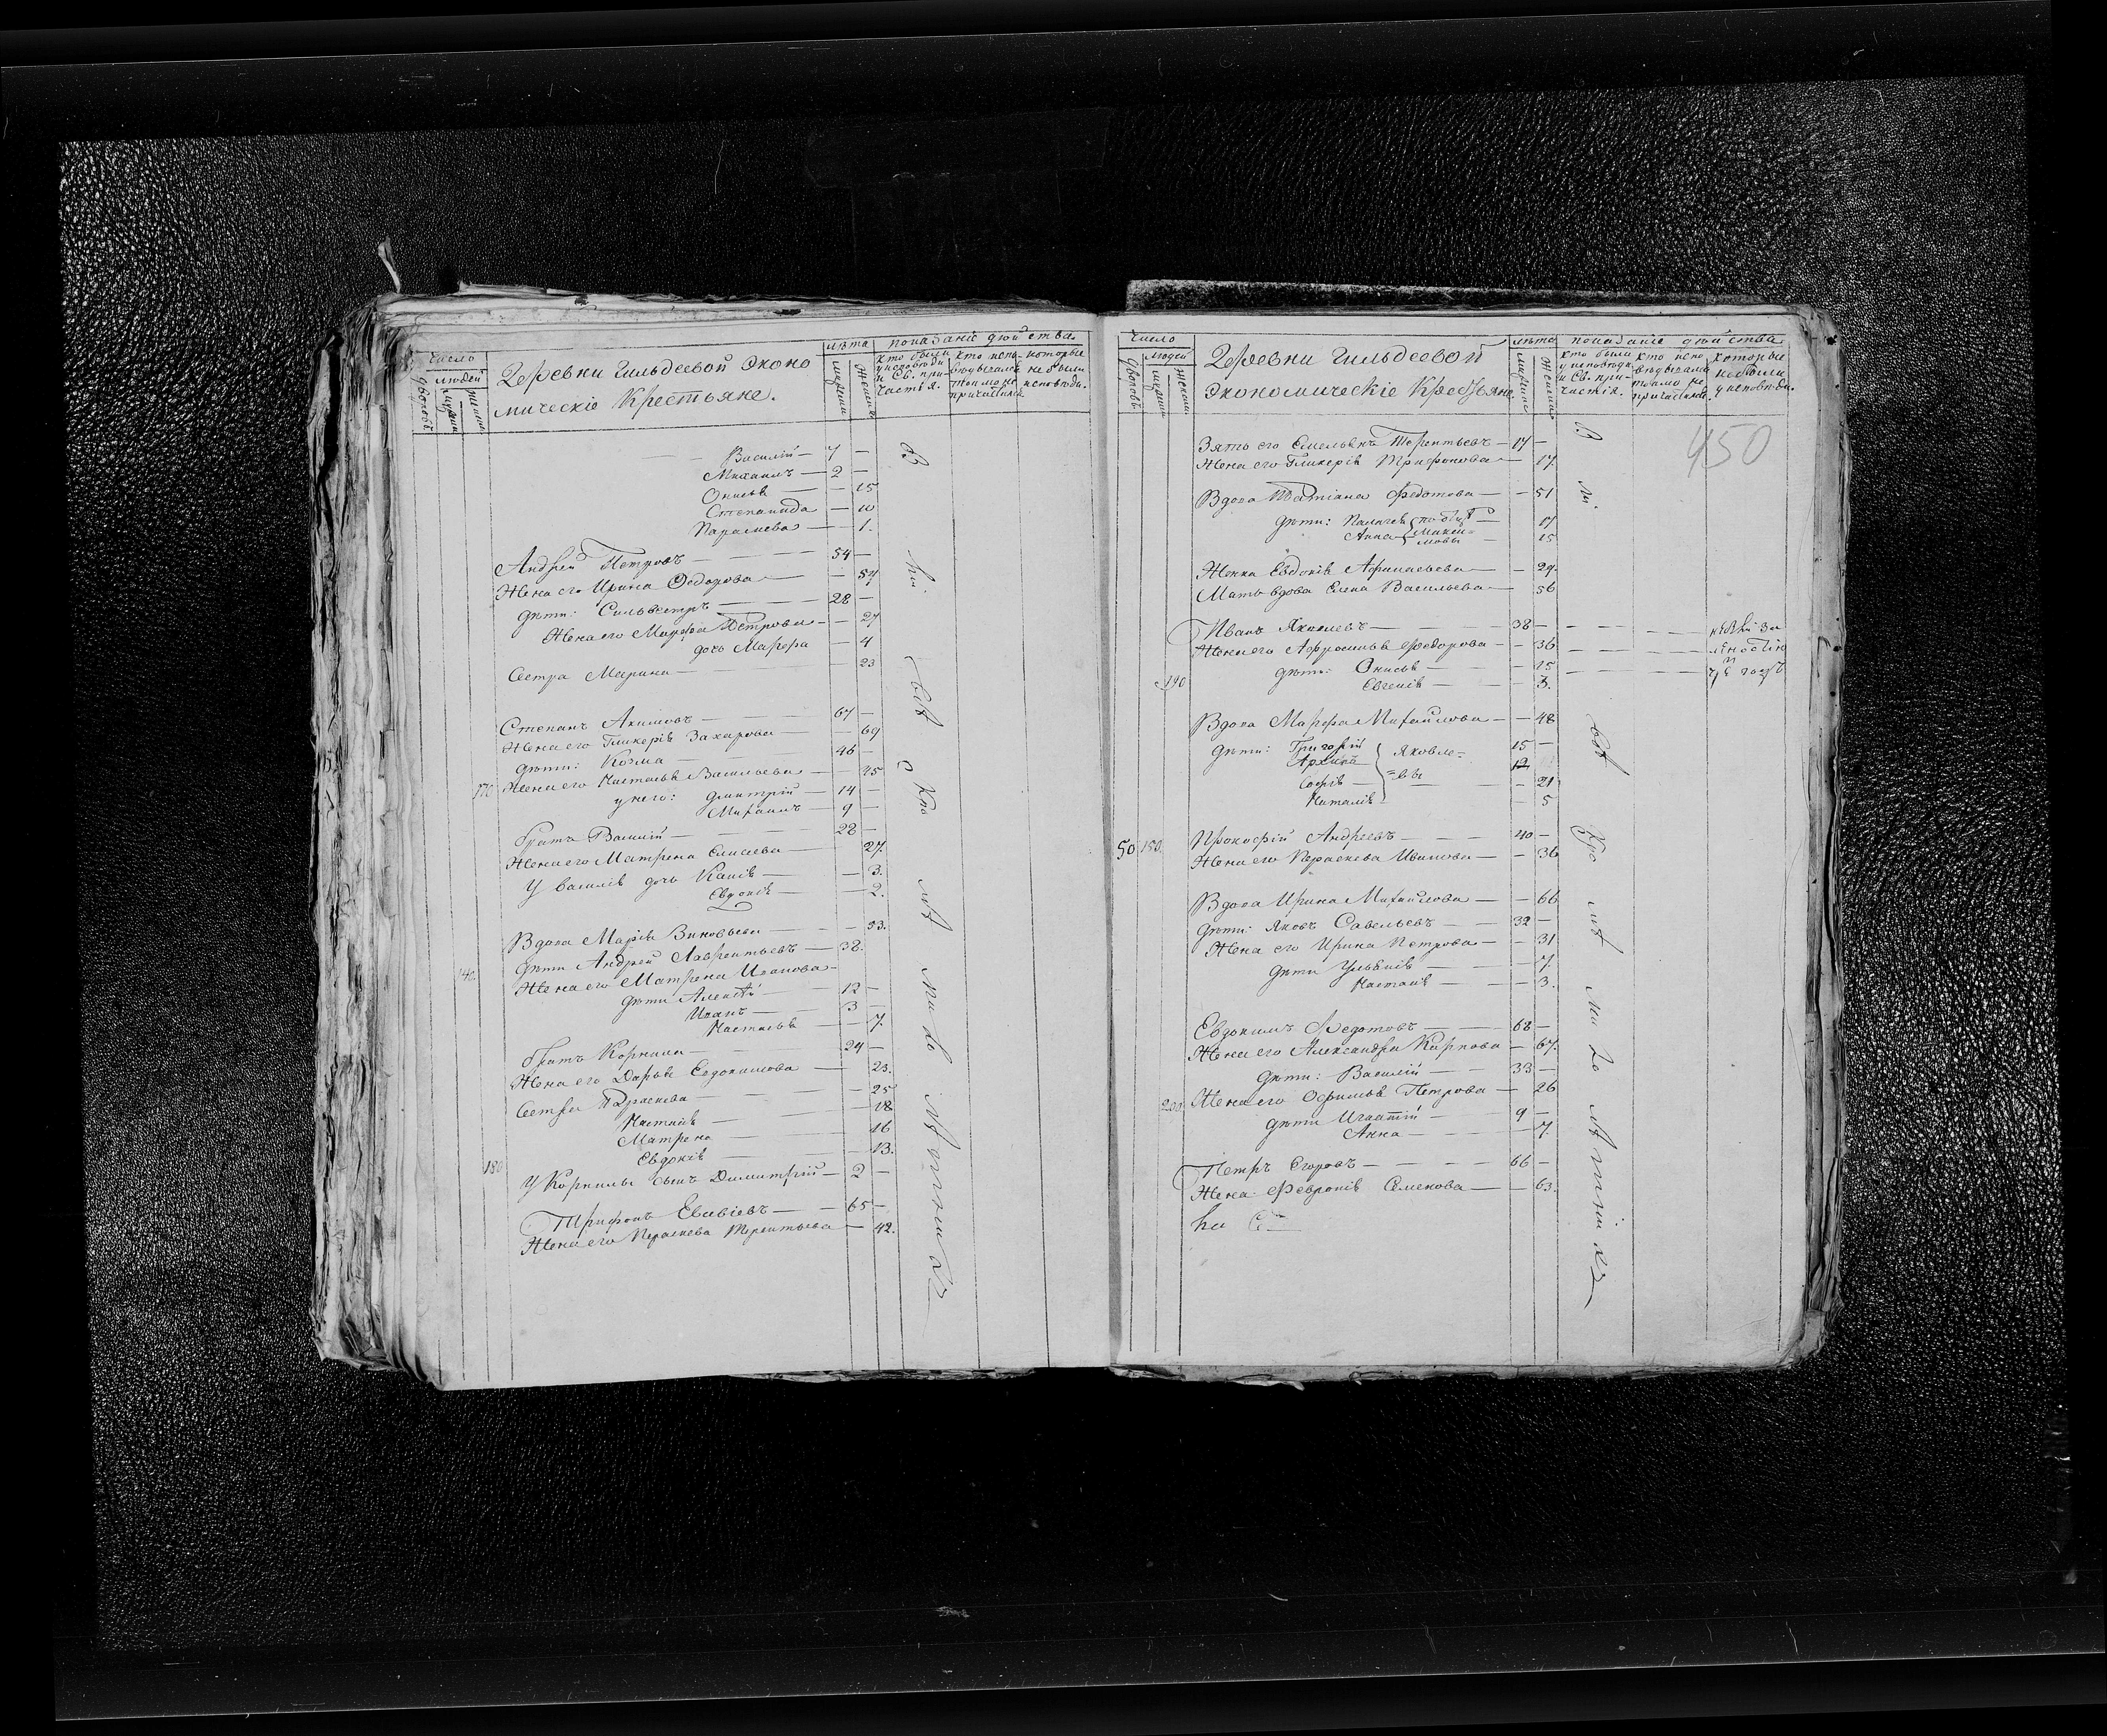 число
людей
дворовъ
мужеска
женска
Деревни Гильдеевой Эконо
мическіе Крестьяне.
лѣта
мужеска
женска
показаніе дѣйства
кто были у исповѣди и Св. причастія.
кто исповѣдывался токмо не причастился
которые не были у исповѣди.
Василій — 7 —
Михаилъ — 2 —
Онисья — — 15
Степанида — — 10
Параскева — — 1.
Андрей Петровъ — 54 —
Жена его Ирина Ѳедорова — — 54
дѣти: Сильвестръ — 28 —
Жена его Марѳа Петрова — — 27
дочь Марѳа — — 4
Сестра Марина — — 23
Степанъ Акимовъ — 67 —
Жена его Гликерія Захарова — — 69
дѣти: Козма — 46 —
170 Жена его Настасья Васильева — — 45
у него: Дмитрій — 14 —
Михаилъ — 9 —
братъ Василій — 28 —
Жена его Матрена Елисеева — — 27.
У Василія дочь — 3.
Евдокія — — 2.
Вдова Марія Зиновьева — — 53.
дѣти Андрей Лаврентьевъ — 38.
140. Жена его Матрена Иванова —
дѣти Алексѣй — 12 —
Иванъ — 3 —
Настасья — — 7.
братъ Корнила — 24 —
Жена его Дарья Евдокимова — — 23.
Сестры Параскева — — 25
Настасія — — 18
Матрена — — 16
180 Евдокія — — 13.
У Корнилы сынъ Димитрій — 2 —
Трифонъ Евсевіевъ — 65 —
Жена его Параскева Терентьева — — 42.
число
людей
дворовъ
мужеска
женска
Деревни Гильдеевой
Экономическіе Крестьяне
лѣта
мужеска
женска
показаніе дѣйства
кто были у исповѣди и Св. причастія.
кто исповѣдывался токмо не причастился.
которые не были у исповѣди.
450
Зять его Емельянъ Терентьевъ — 17 —
Жена его Гликерія Трифонова — — 17.
Вдова Татіана Федотова — — 51
дѣти: Пелагея — 17
Анна Максимовы — 15
Женка Евдокія Афанасьева — — 29.
Мать вдова Елена Васильева — 56
Иванъ Яковлевъ — 38 —
Жена его Афросинья Федорова — — 36
дѣти: Онисья — — 15
190 Евгенія — — 3.
Вдова Марѳа Михайлова — — 48
дѣти: Григорій Яковле= 15 —
Архипъ 12
Софія =вы — 21
Наталія — 5
50 150. Прокофій Андреевъ — 40 —
Жена его Параскева Иванова — — 36
Вдова Ирина Михайлова — — 66
дѣти: Яковъ Савельевъ — 32 —
Жена его Ирина Петрова — — 31
дѣти Ульянія — — 7.
Настасія — — 3.
Евдокимъ Федотовъ — 68 —
Жена его Александра Карпова — 67.
дѣти: Василій — 33 —
200. Жена его Офимья Петрова — 26
дѣти Игнатій — 9 —
Анна — — 7.
Петръ Егоровъ — 66 —
Жена Февронія Семенова — — 63.